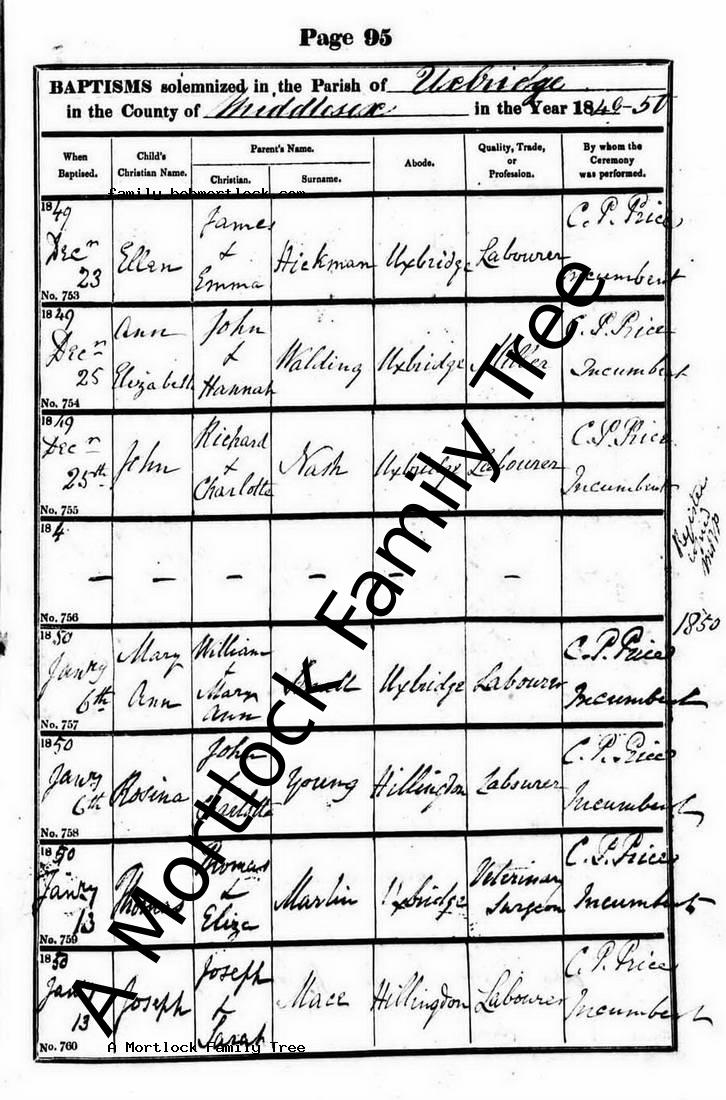 Page 95
BAPTISMS solemnized in the Parish of Uxbridge
in the County of Middlesex in the Year 1849-50
When Baptised.
Child's Christian Name.
Parent's Name.
Christian.
Surname.
Abode.
Quality, Trade, or Profession.
By whom the Ceremony was performed.
family.bobmortlock.com
1849 Decr 23
Ellen
James & Emma
Hickman
Uxbridge
Labourer
C. P. Price, Incumbent
No. 753
1849 Decr 25
Ann Elizabeth
John & Hannah
Walding
Uxbridge
Miller
C. P. Price Incumbent
No. 754
1849 Decr 25th
John
Richard & Charlotte
Nash
Uxbridge
Labourer
C. P. Price Incumbent
No. 755
184
— — — — — —
No. 756
Register
1850
1850 Janry 6th
Mary Ann
William & Mary Ann
Uxbridge
Labourer
C. P. Price Incumbent
No. 757
1850 Janry 6th
Rosina
John & Charlotte
Young
Hillingdon
Labourer
C. P. Price Incumbent
No. 758
1850 Janry 13
Thomas
Thomas & Eliza
Martin
Uxbridge
Veterinary Surgeon
C. P. Price Incumbent
No. 759
1850 Janry 13
Joseph
Joseph & Sarah
Mace
Hillingdon
Labourer
C. P. Price Incumbent
No. 760
A Mortlock Family Tree
A Mortlock Family Tree